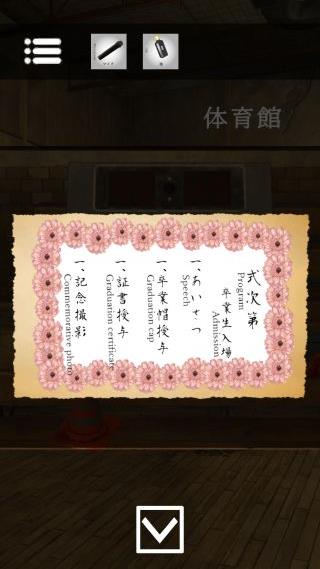 体育館
式次第
Program
卒業生入場
Admission
一、あいさつ
Speech
一、卒業帽授与
Graduation cap
一、証書授与
Graduation certificate
一、記念撮影
Commemorative photo